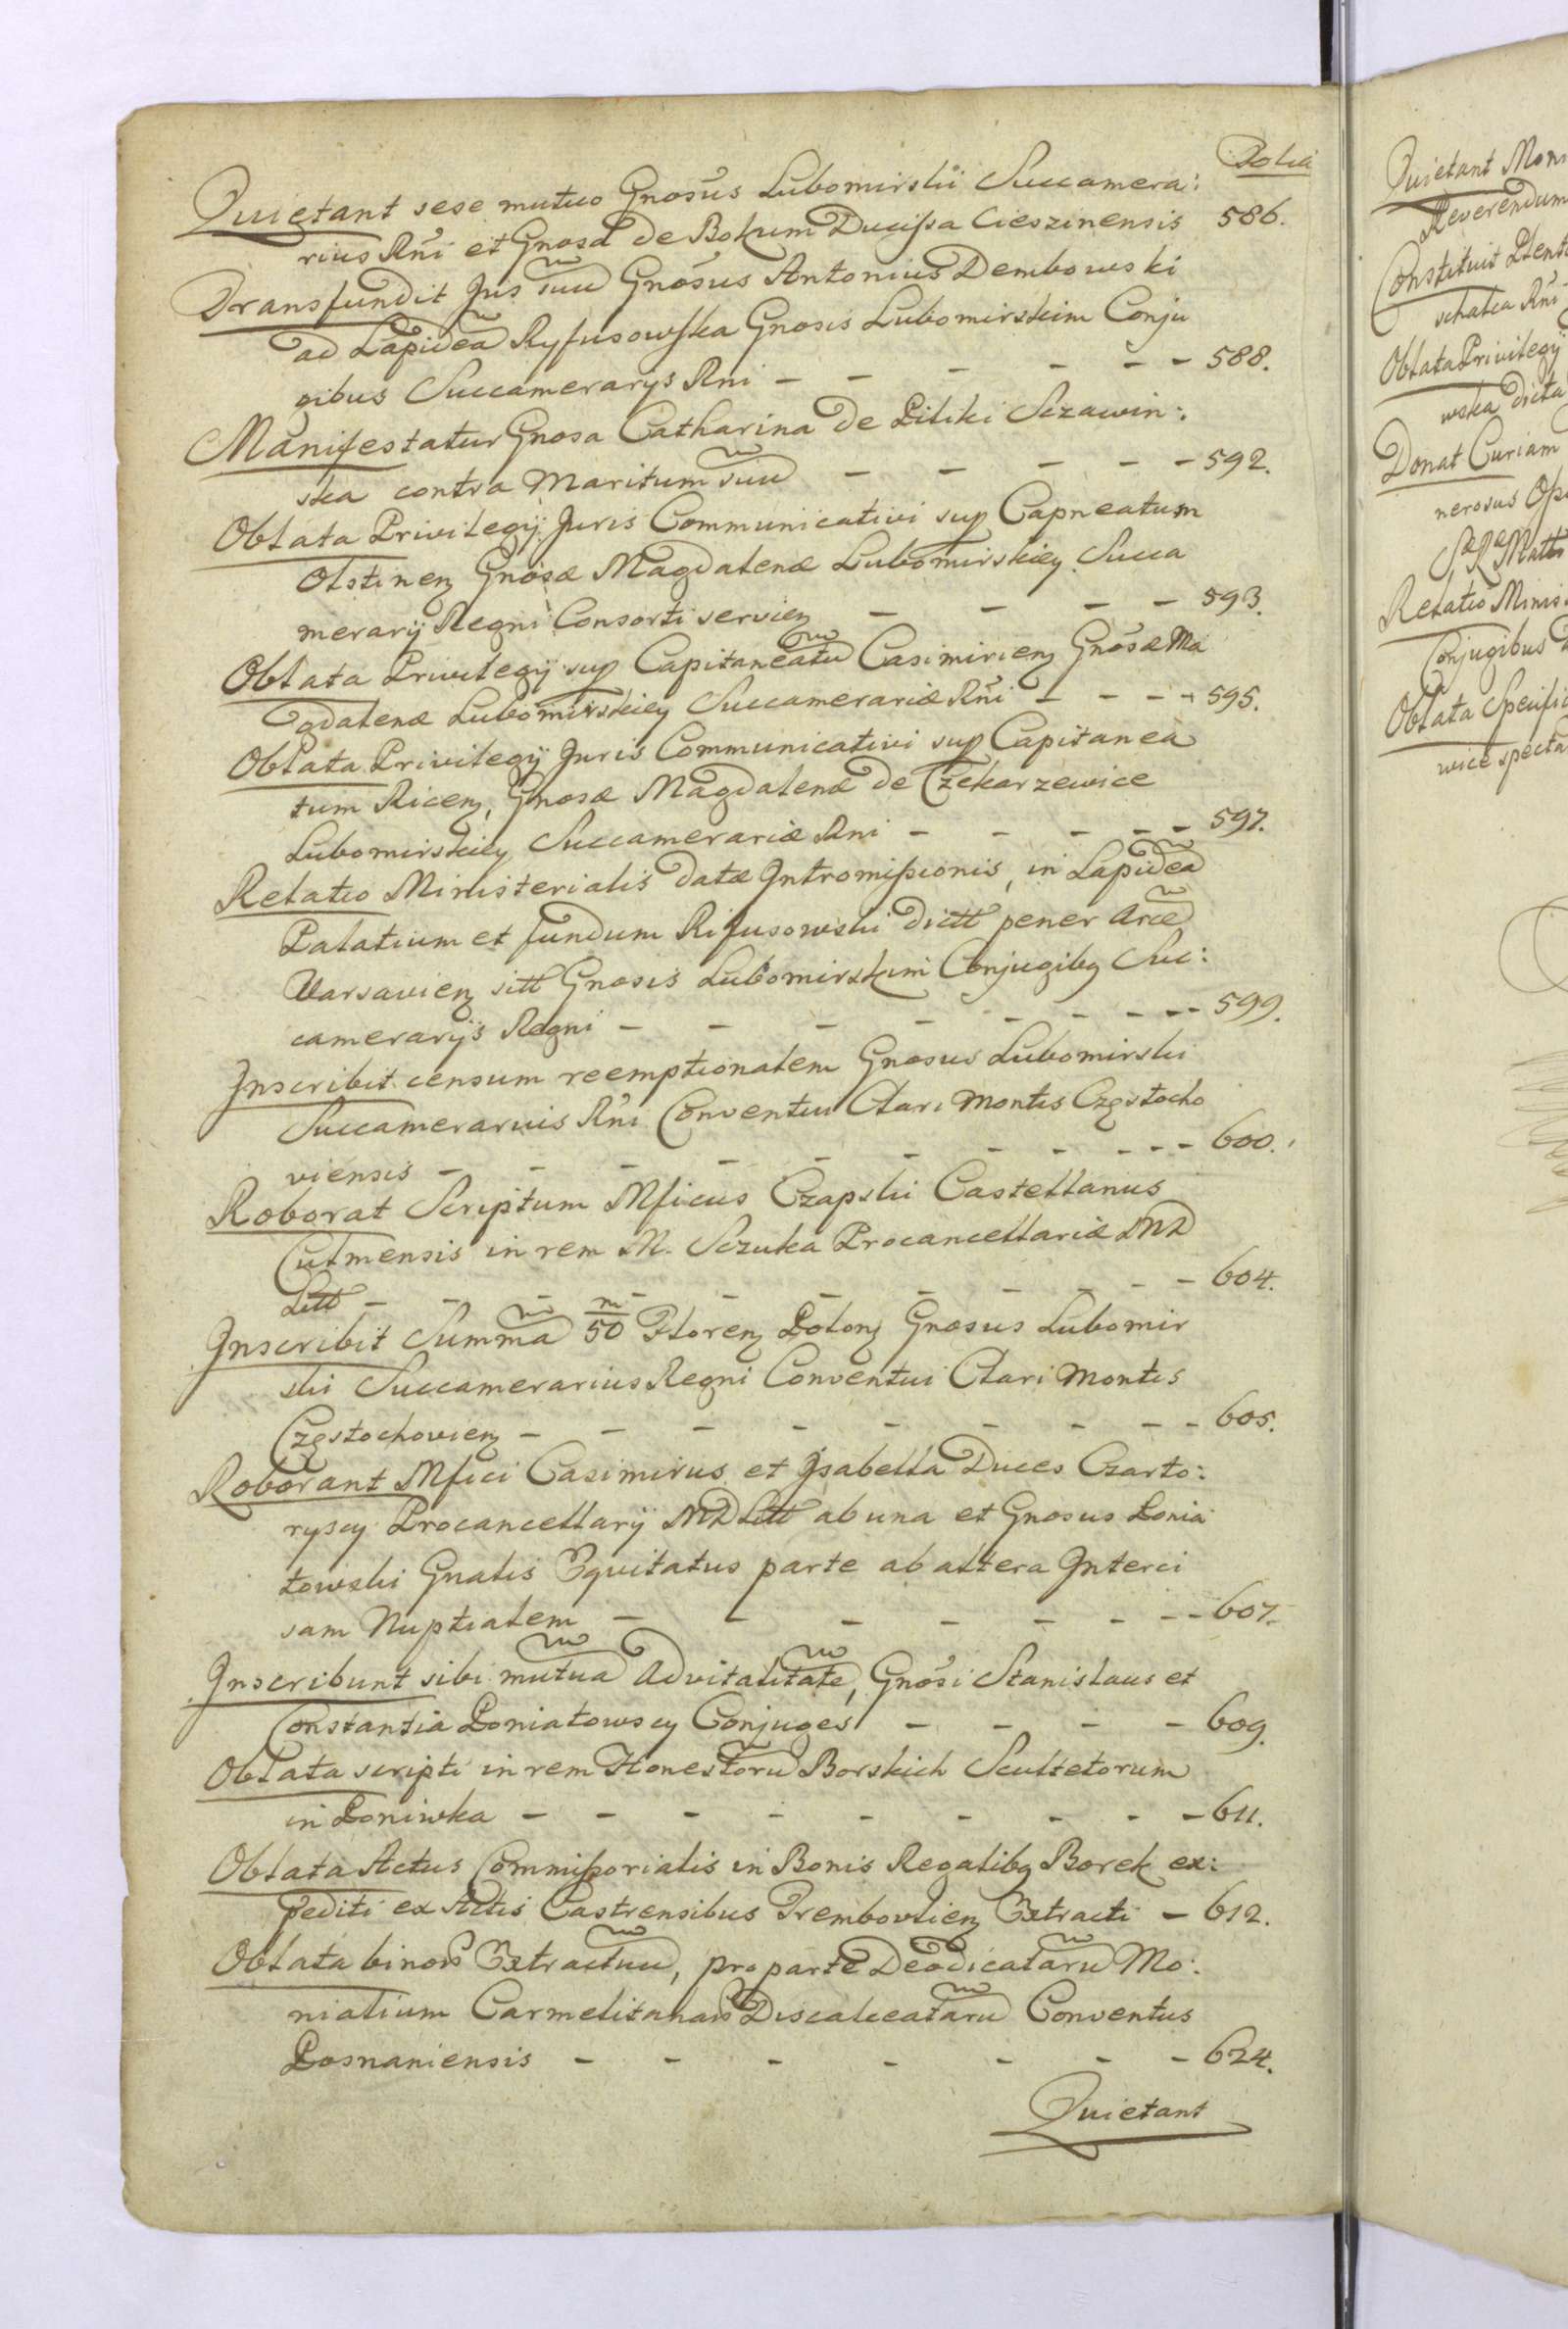 Folia
Quietant sese mutuo Gnosus Lubomirski Succamera:
rius Rni et Gnosa de Bokum Ducissa Cieszinensis 586.
Transfundit Jus suu Gnosus Antonius Dembowski
ad Lapidea Ryfusowska Gnosis Lubomirskim Conju
gibus Succamerarys Rni - - - - - - 588.
Manifestatur Gnosa Catharina de Pilski Sczawin:
ska contra Maritum suu - - - - - 592.
Oblata Privilegÿ Juris Communicativi sup Capneatum
Olstinen Gnosæ Magdalenæ Lubomirskiey Succa
merarÿ Regni Consorti servien - - - - 593.
Oblata Privilegÿ sup Capitaneatu Casimirien Gnosæ Ma
gdalenæ Lubomirskiey Succamerariæ Rni - - - - 595.
Oblata Privilegÿ Juris Communicativi sup Capitanea
tum Ricen, Gnosæ Magdalenæ de Czekarzewice
Lubomirskiey Succamerariæ Rni - - - - - 597.
Relatio Ministerialis datæ Intromissionis, in Lapidea
Palatium et fundum Rifusowski dictt pener Arce
Varsavien sitt Gnosis Lubomirskim Conjugibq Suc:
camerarÿs Regni - - - - - - - - 599.
Inscribit censum reemptionalem Gnosus Lubomirski
Succamerarius Rni Conventui Clari Montis Częstocho
viensis - - - - - - - - - - 600.
Roborat Scriptum Mficus Czapski Castellanus
Culmensis in rem M. Sczuka Procancellariæ MD
Litt - - - - - - - - - 604.
Inscribit Summa m/50 Floren Polon Gnosus Lubomir
ski Succamerarius Regni Conventui Clari Montis
Częstochovien - - - - - - - - - 605.
Roborant Mfici Casimirus et Isabella Duces Czarto:
ryscy Procancellarÿ MD Litt ab una et Gnosus Ponia
towski Gnalis Equitatus parte ab altera Interci
sam Nuptialem - - - - - - - - 607.
Inscribunt sibi mutua Advitalitate, Gnosi Stanislaus et
Constantia Poniatowscy Conjuges - - - - 609.
Oblata scripti in rem Honestoru Borskich Scultetorum
in Poniwka - - - - - - - - - 611.
Oblata Actus Commissorialis in Bonis Regalibq Borek ex:
pediti ex Actis Castrensibus Trembovlien Extracti - 612.
Oblata binor Extractuu, pro parte Deodicataru Mo:
nialium Carmelitanar Discalceataru Conventus
Posnaniensis - - - - - - - 624.
Quietant
Quietant Mon
Reverendum
Constituit Plent
schalca Rni
Oblata Privilegÿ
wska dicta
Donat Curiam
nerosus Op
Relatio Minis
Conjugibus
Oblata Specific
wice specta